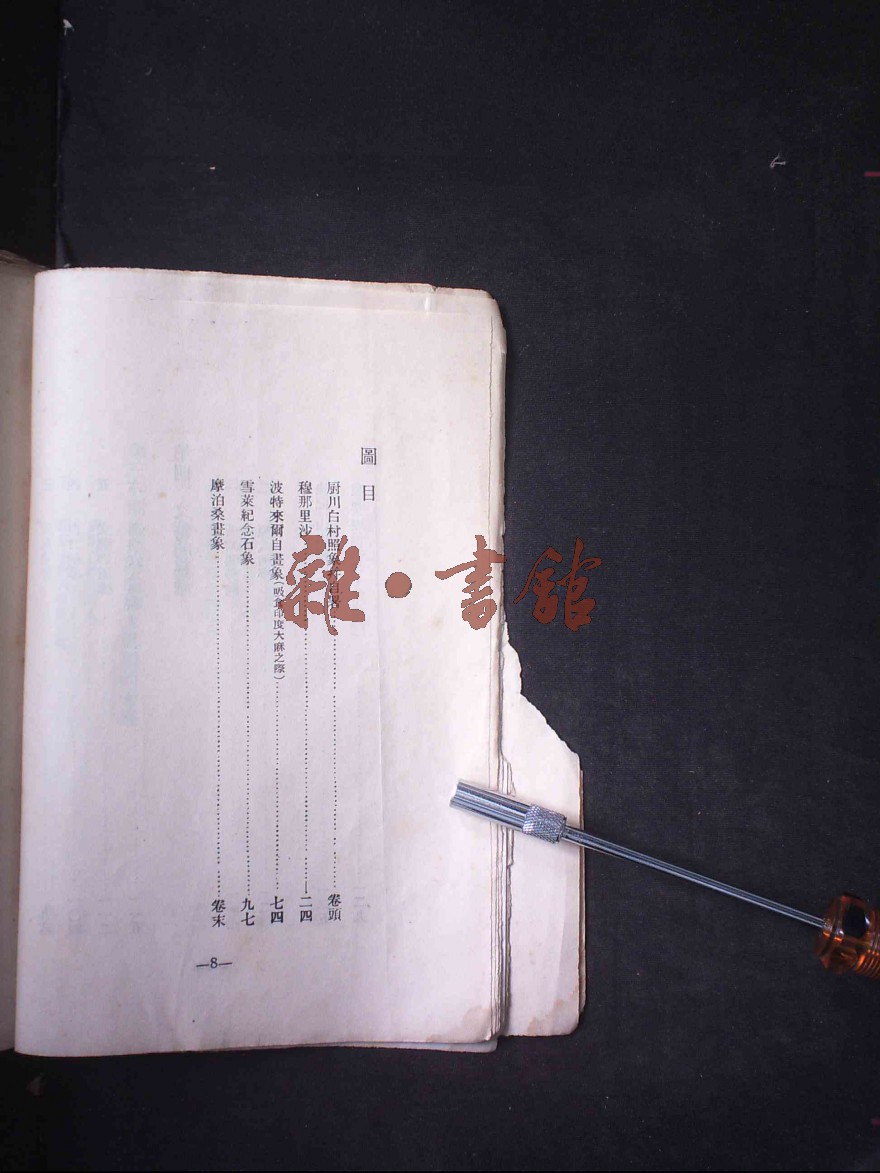 圖目
厨川白村照象及自署……卷頭
穆那里沙……二四
波特來爾自畫象(吸食印度大麻之際)……七四
雪萊紀念石象……九七
摩泊桑畫象……卷末
—8—
雜·書館